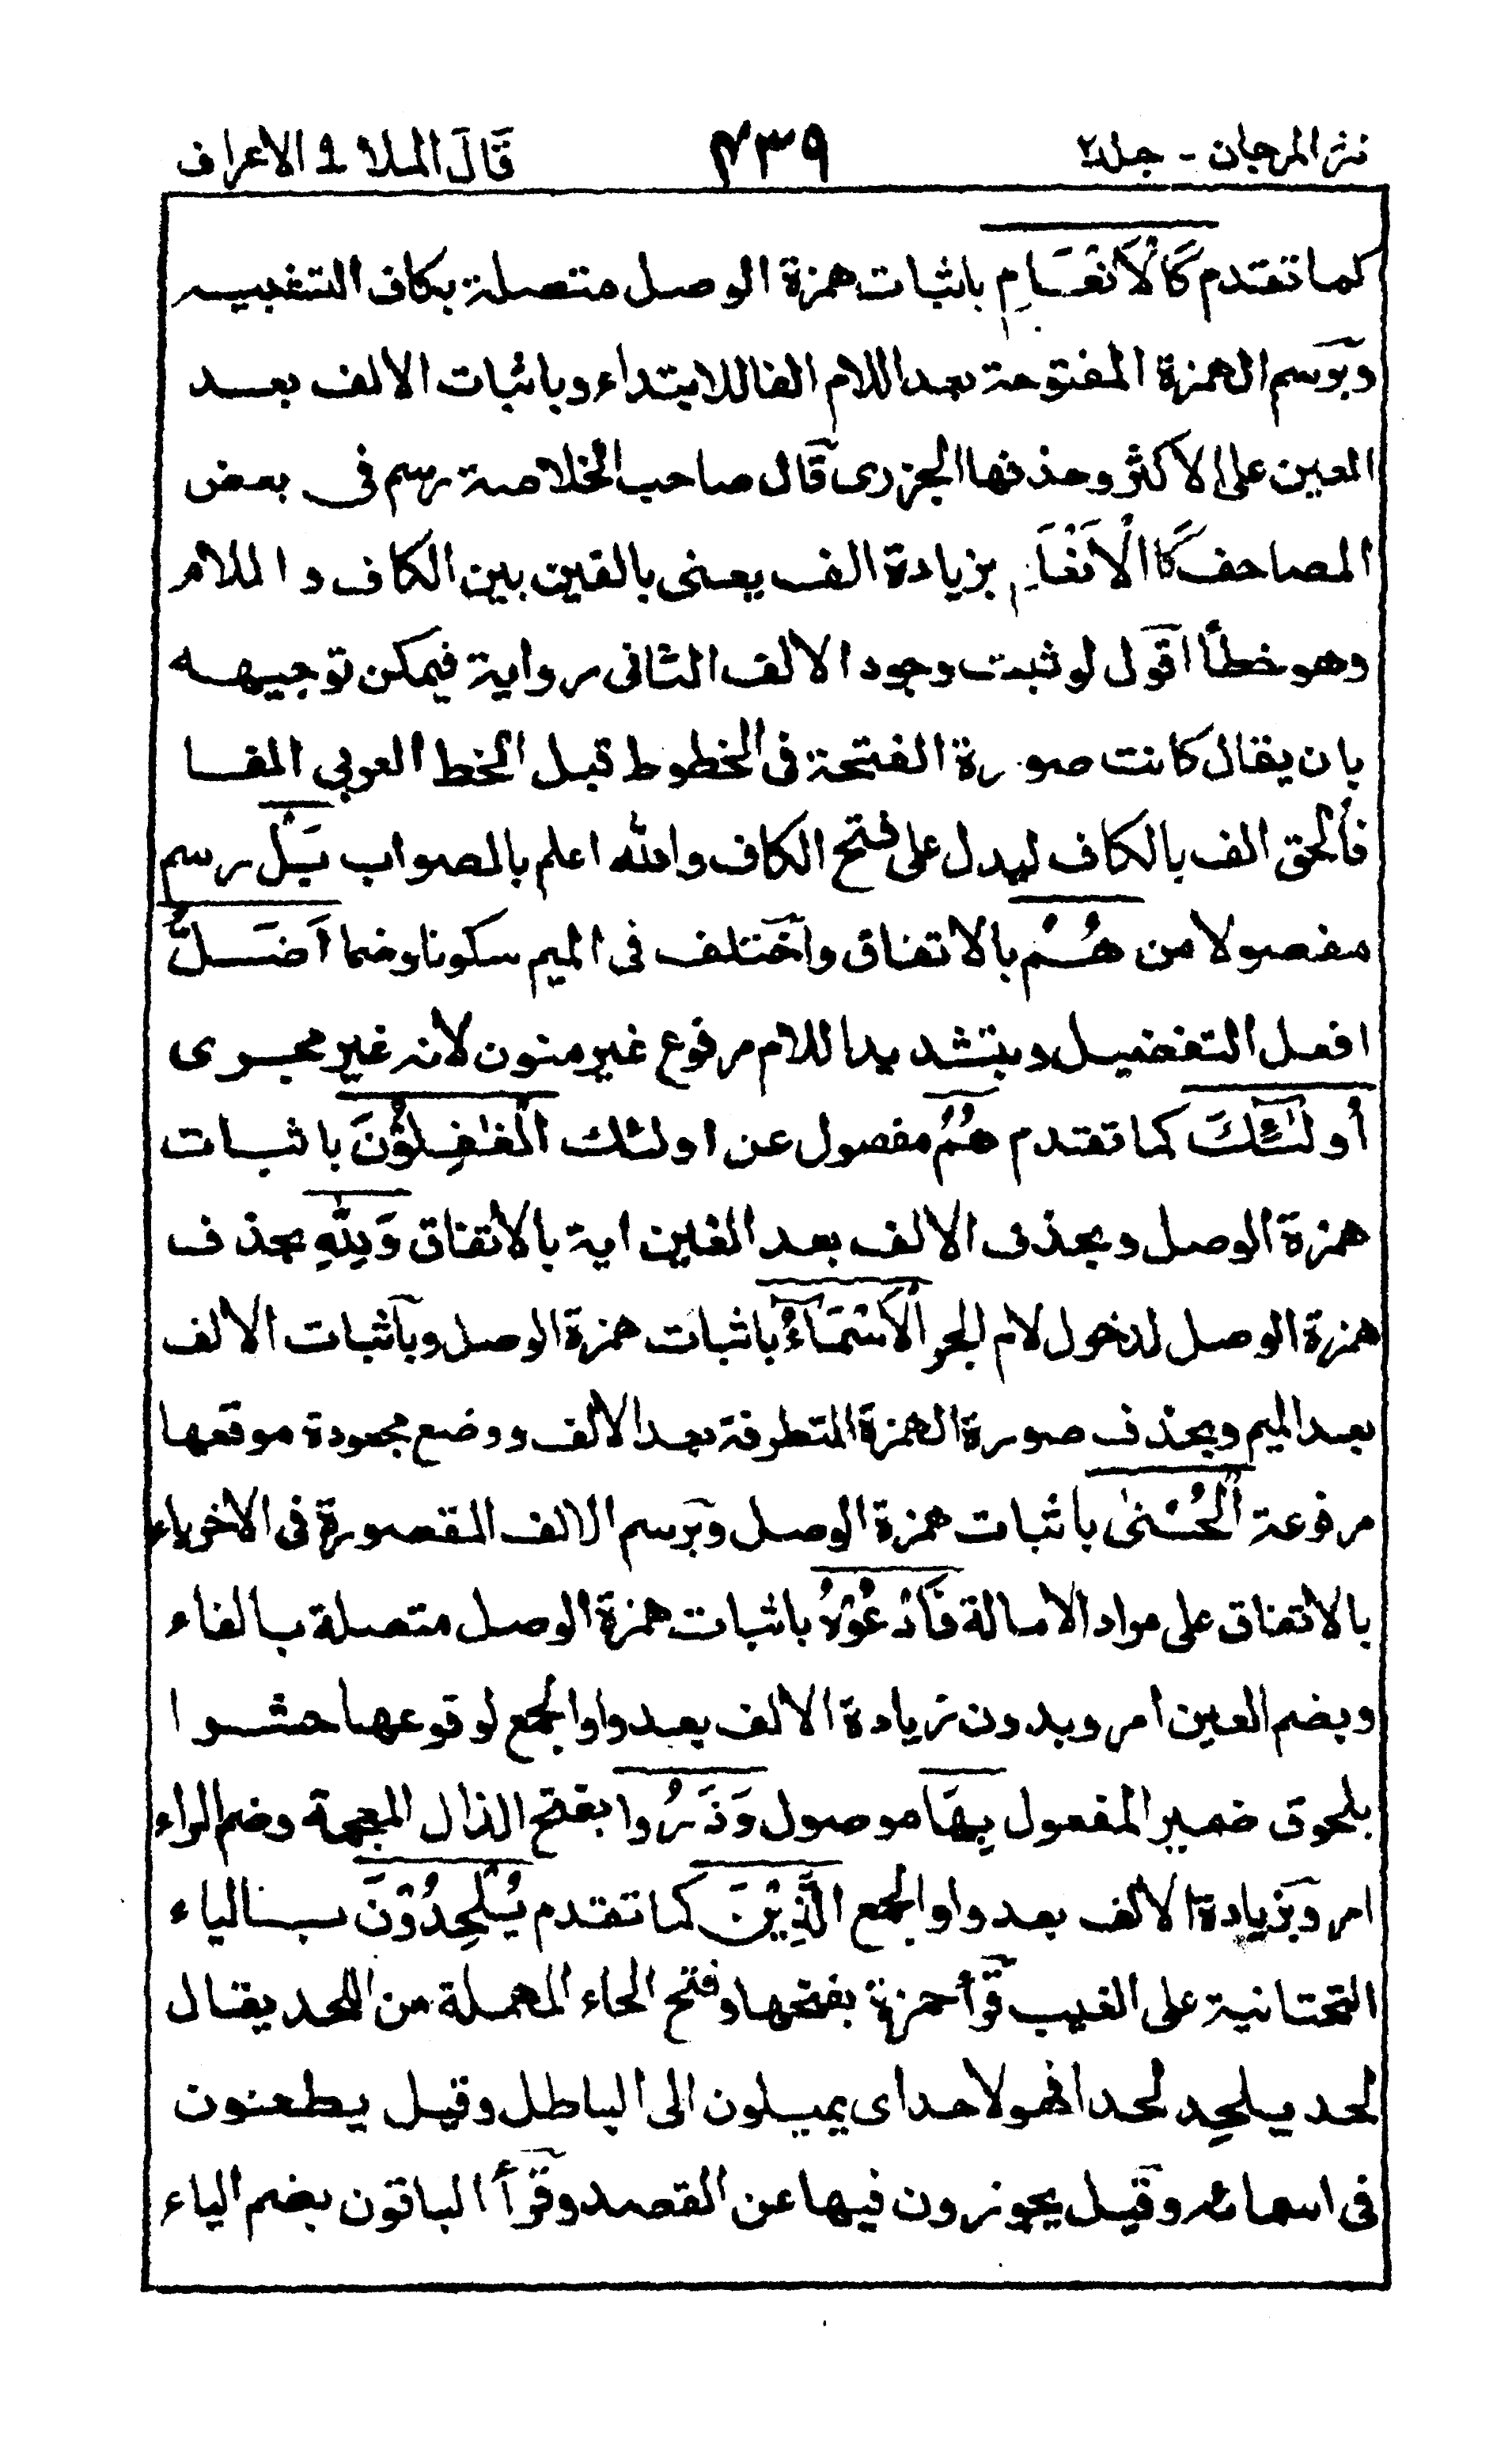 نثر المرجان - جلد ٢
٤٣٩
قَالَ الملا ٩ الاعراف
كما تقدم كَالْاَنْعَامِ باثبات همزة الوصل متصلة بكاف التشبيه
وبرسم الهمزة المفتوحة بعد اللام الفا للابتداء وباثبات الالف بعد
العين على الاكثر وحذفها الجزرى قال صاحب الخلاصة رسم فى بعض
المصاحف كَا الْاَنْعَامِ بزيادة الف يعنى بالفين بين الكاف و اللام
وهو خطأ اقول لو ثبت وجود الالف الثانى رواية فيمكن توجيهه
بان يقال كانت صورة الفتحة فى الخطوط قبل الخط العربى الفا
فألحق الف بالكاف ليدل على فتح الكاف والله اعلم بالصواب بَلْ رسم
مفصولا من هُمْ بالاتفاق واختلف فى الميم سكونا وضما اَضَلُّ
افعل التفضيل وبتشديد اللام مرفوع غير منون لانه غير مجرى
اُولٰٓئِكَ كما تقدم هُمُ مفصول عن اولئك الْغٰفِلُوْنَ باثبات
همزة الوصل وبحذف الالف بعد الغين اية بالاتفاق وَلِلّٰهِ بحذف
همزة الوصل لدخول لام الجر الْاَسْمَآءُ باثبات همزة الوصل وباثبات الالف
بعد الميم وبحذف صورة الهمزة المتطرفة بعد الالف ووضع مجعودة موقعها
مرفوعة الْحُسْنٰى باثبات همزة الوصل وبرسم الالف المقصورة فى الاخر ياء
بالاتفاق على مراد الامالة فَادْعُوْهُ باثبات همزة الوصل متصلة بالفاء
وبضم العين امر وبدون زيادة الالف بعد واو الجمع لوقوعها حشوا
بلحوق ضمير المفعول بِهَا موصول وَذَرُوا بفتح الذال المعجمة وضم الراء
امر وبزيادة الالف بعد واو الجمع الَّذِيْنَ كما تقدم يُلْحِدُوْنَ بالياء
التحتانية على الغيب قرأ حمزة بفتحها وفتح الحاء المهملة من اللحد يقال
لحد يلحد لحدا فهو لاحد اى يميلون الى الباطل وقيل يطعنون
فى اسمائه وقيل يجوزون فيها عن القصد وقرأ الباقون بضم الياء